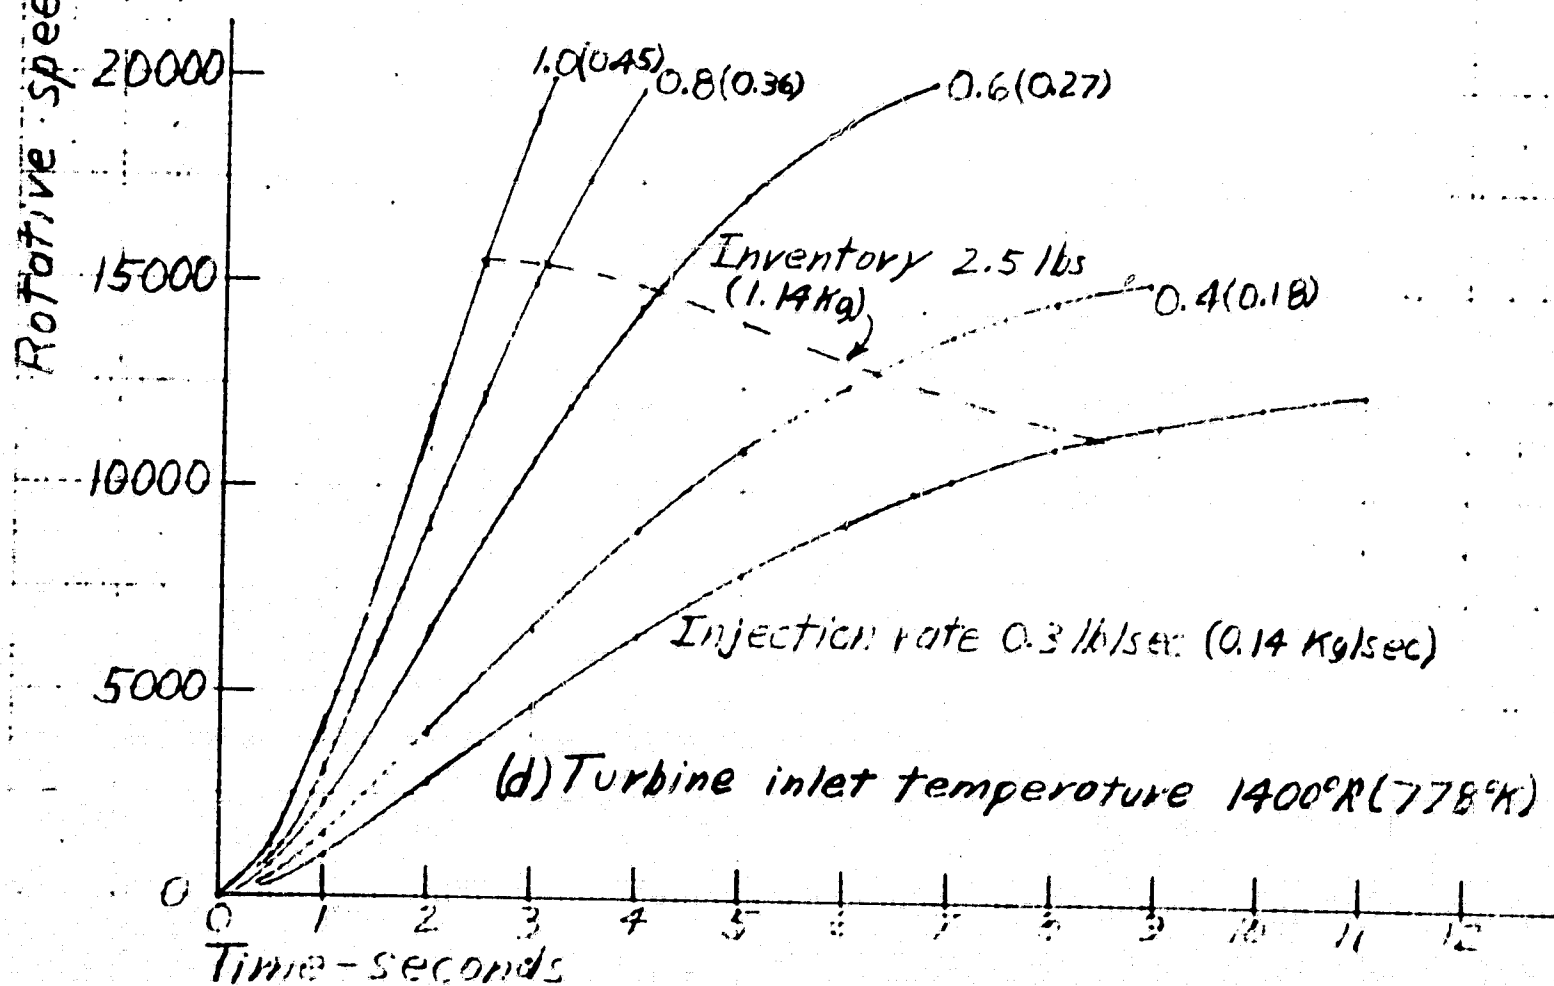 Rotative spee
20000
15000
10000
5000
0
1.0(0.45)
0.8(0.36)
0.6(0.27)
Inventory 2.5 lbs
(1.14Kg)
0.4(0.18)
Injection rate 0.3 lb/sec (0.14 Kg/sec)
(d) Turbine inlet temperature 1400°R (778°K)
0 1 2 3 4 5 6 7 8 9 10 11 12
Time-seconds